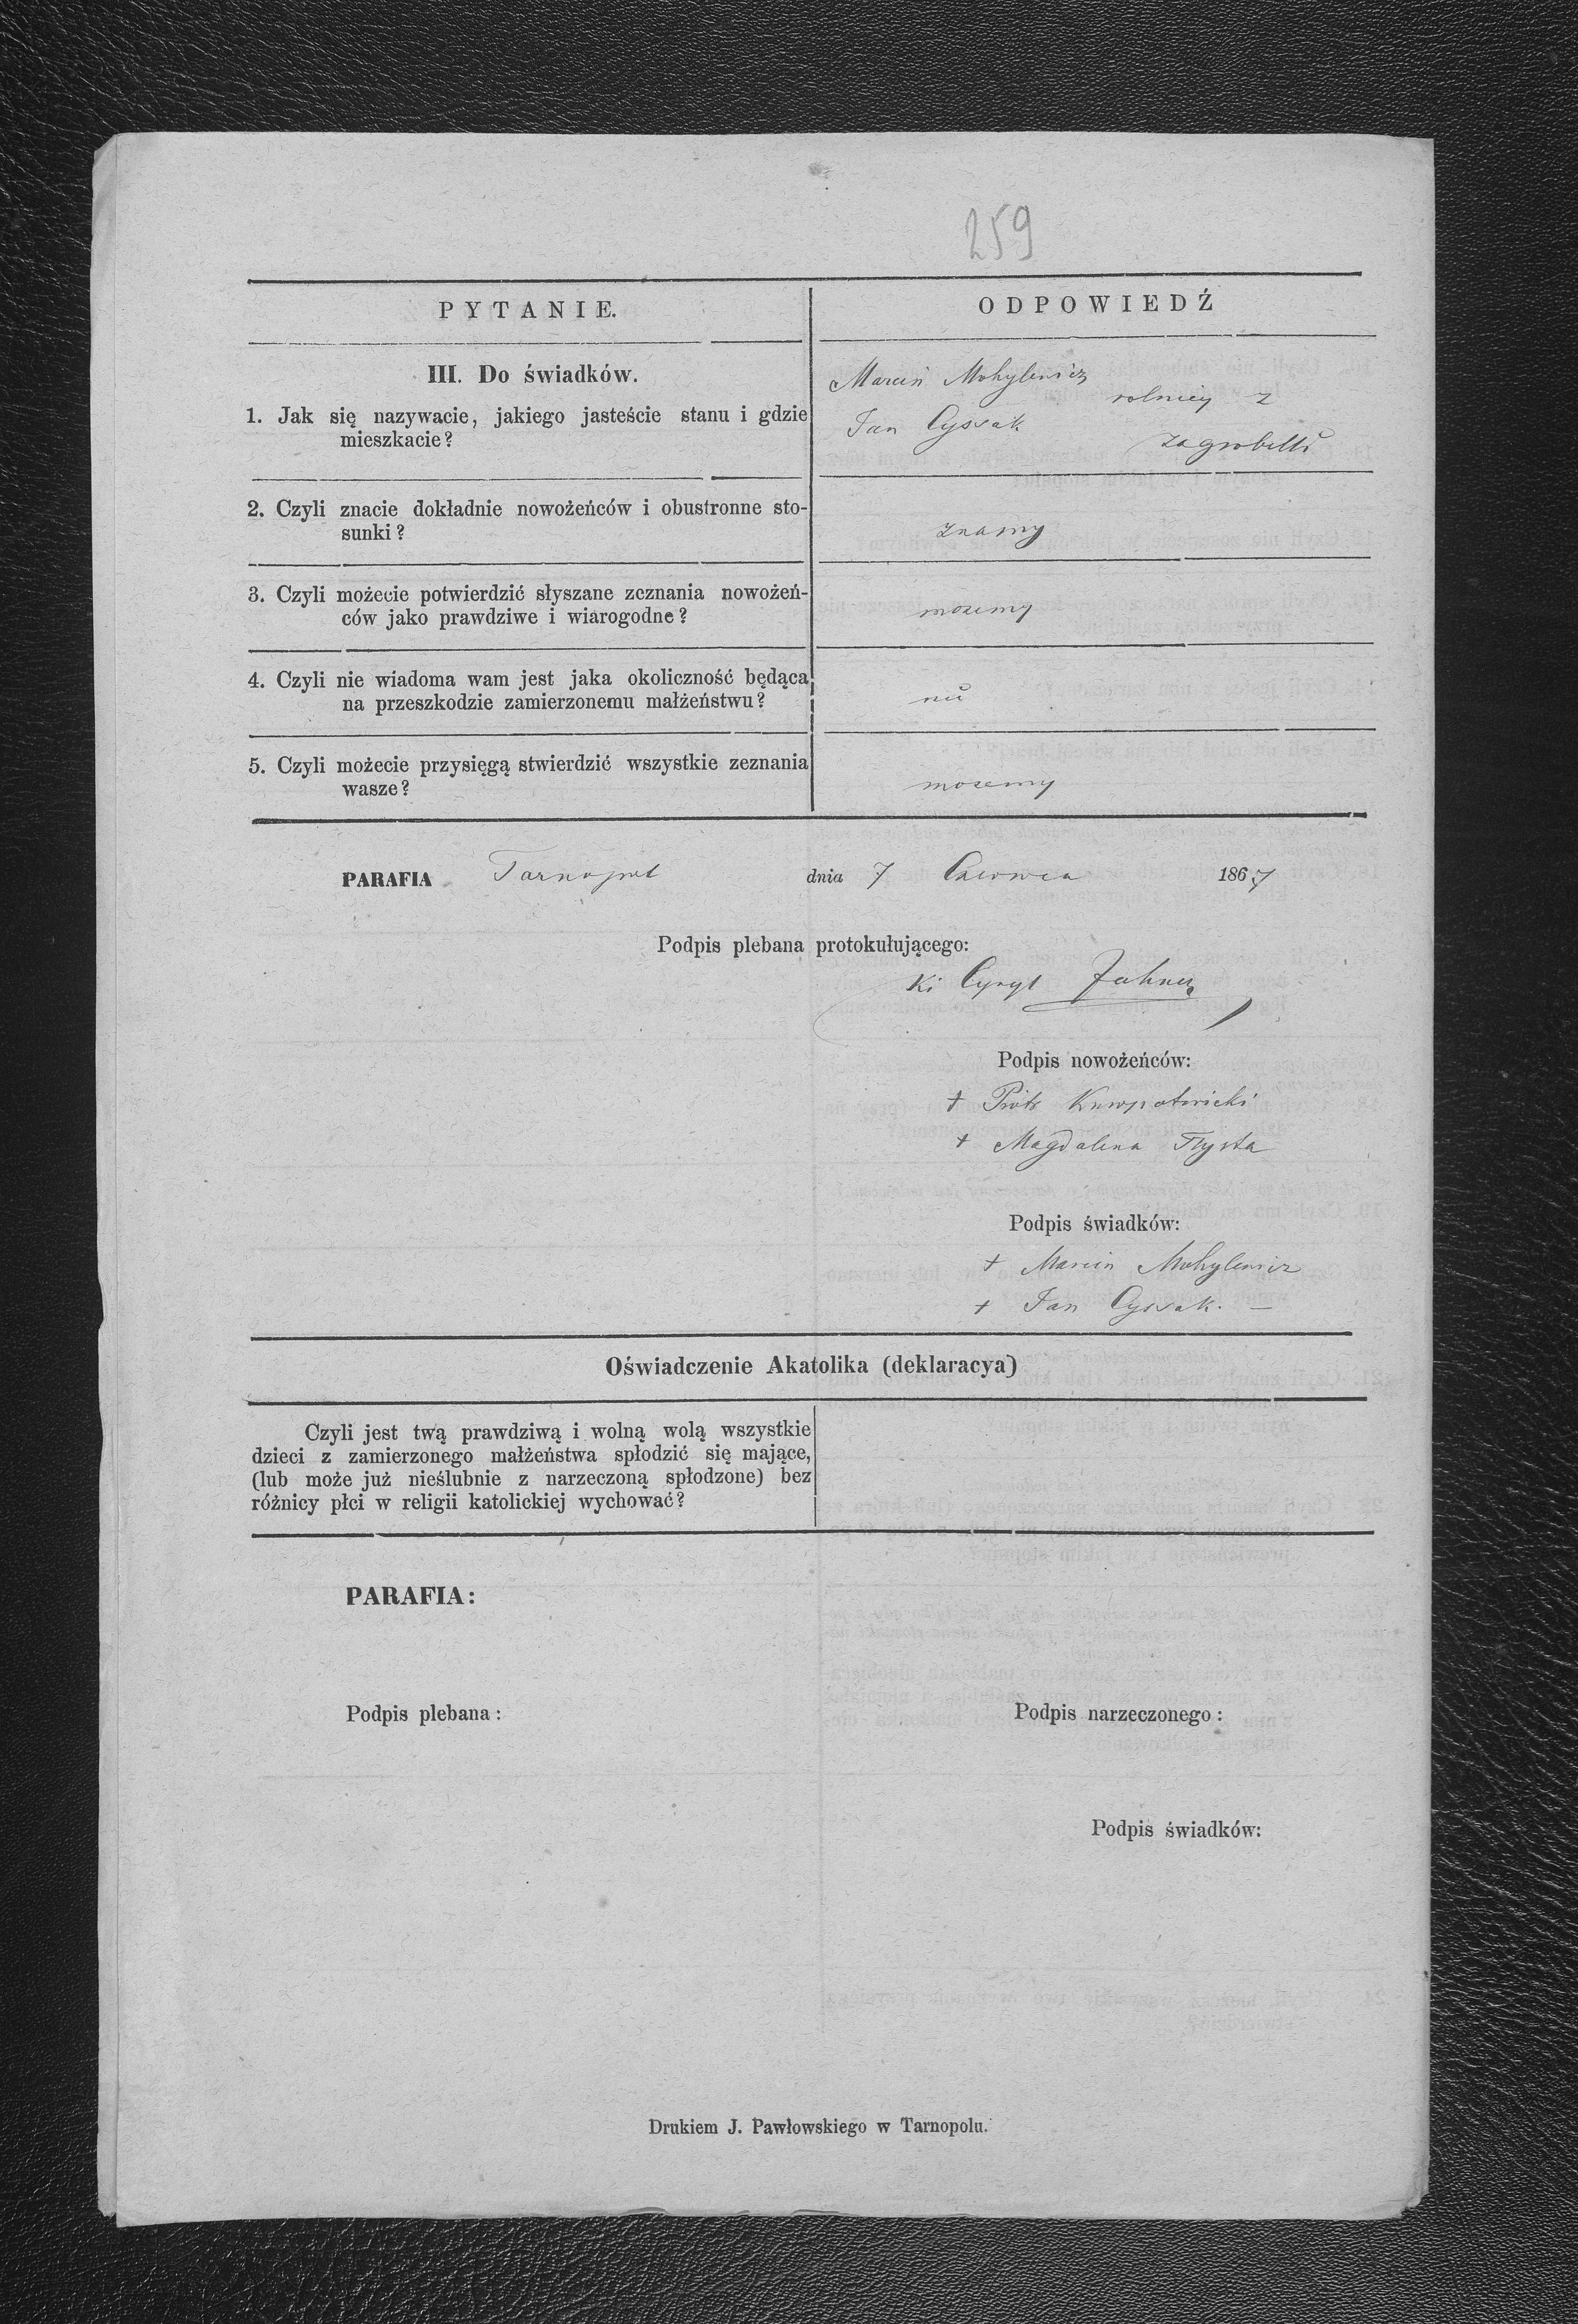 259
PYTANIE.
ODPOWIEDŹ
III. Do świadków.
1. Jak się nazywacie, jakiego jasteście stanu i gdzie
mieszkacie?
Marcin Mohylewicz
rolnicy z
Jan Cyssak
Zagrobelli
2. Czyli znacie dokładnie nowożeńców i obustronne sto-
sunki?
znamy
3. Czyli możecie potwierdzić słyszane zeznania nowożeń-
ców jako prawdziwe i wiarogodne?
mozemy
4. Czyli nie wiadoma wam jest jaka okoliczność będąca
na przeszkodzie zamierzonemu małżeństwu?
nie
5. Czyli możecie przysięgą stwierdzić wszystkie zeznania
wasze?
mozemy
PARAFIA Tarnopol dnia 7 Czerwca 1867
Podpis plebana protokułującego:
Cyryl
Podpis nowożeńców:
+ Piotr
+ Magdalena
Podpis świadków:
+ Marcin Mohylewicz
+ Jan Cyssak. —
Oświadczenie Akatolika (deklaracya)
Czyli jest twą prawdziwą i wolną wolą wszystkie
dzieci z zamierzonego małżeństwa spłodzić się mające,
(lub może już nieślubnie z narzeczoną spłodzone) bez
różnicy płci w religii katolickiej wychować?
PARAFIA:
Podpis plebana:
Podpis narzeczonego:
Podpis świadków:
Drukiem J. Pawłowskiego w Tarnopolu.